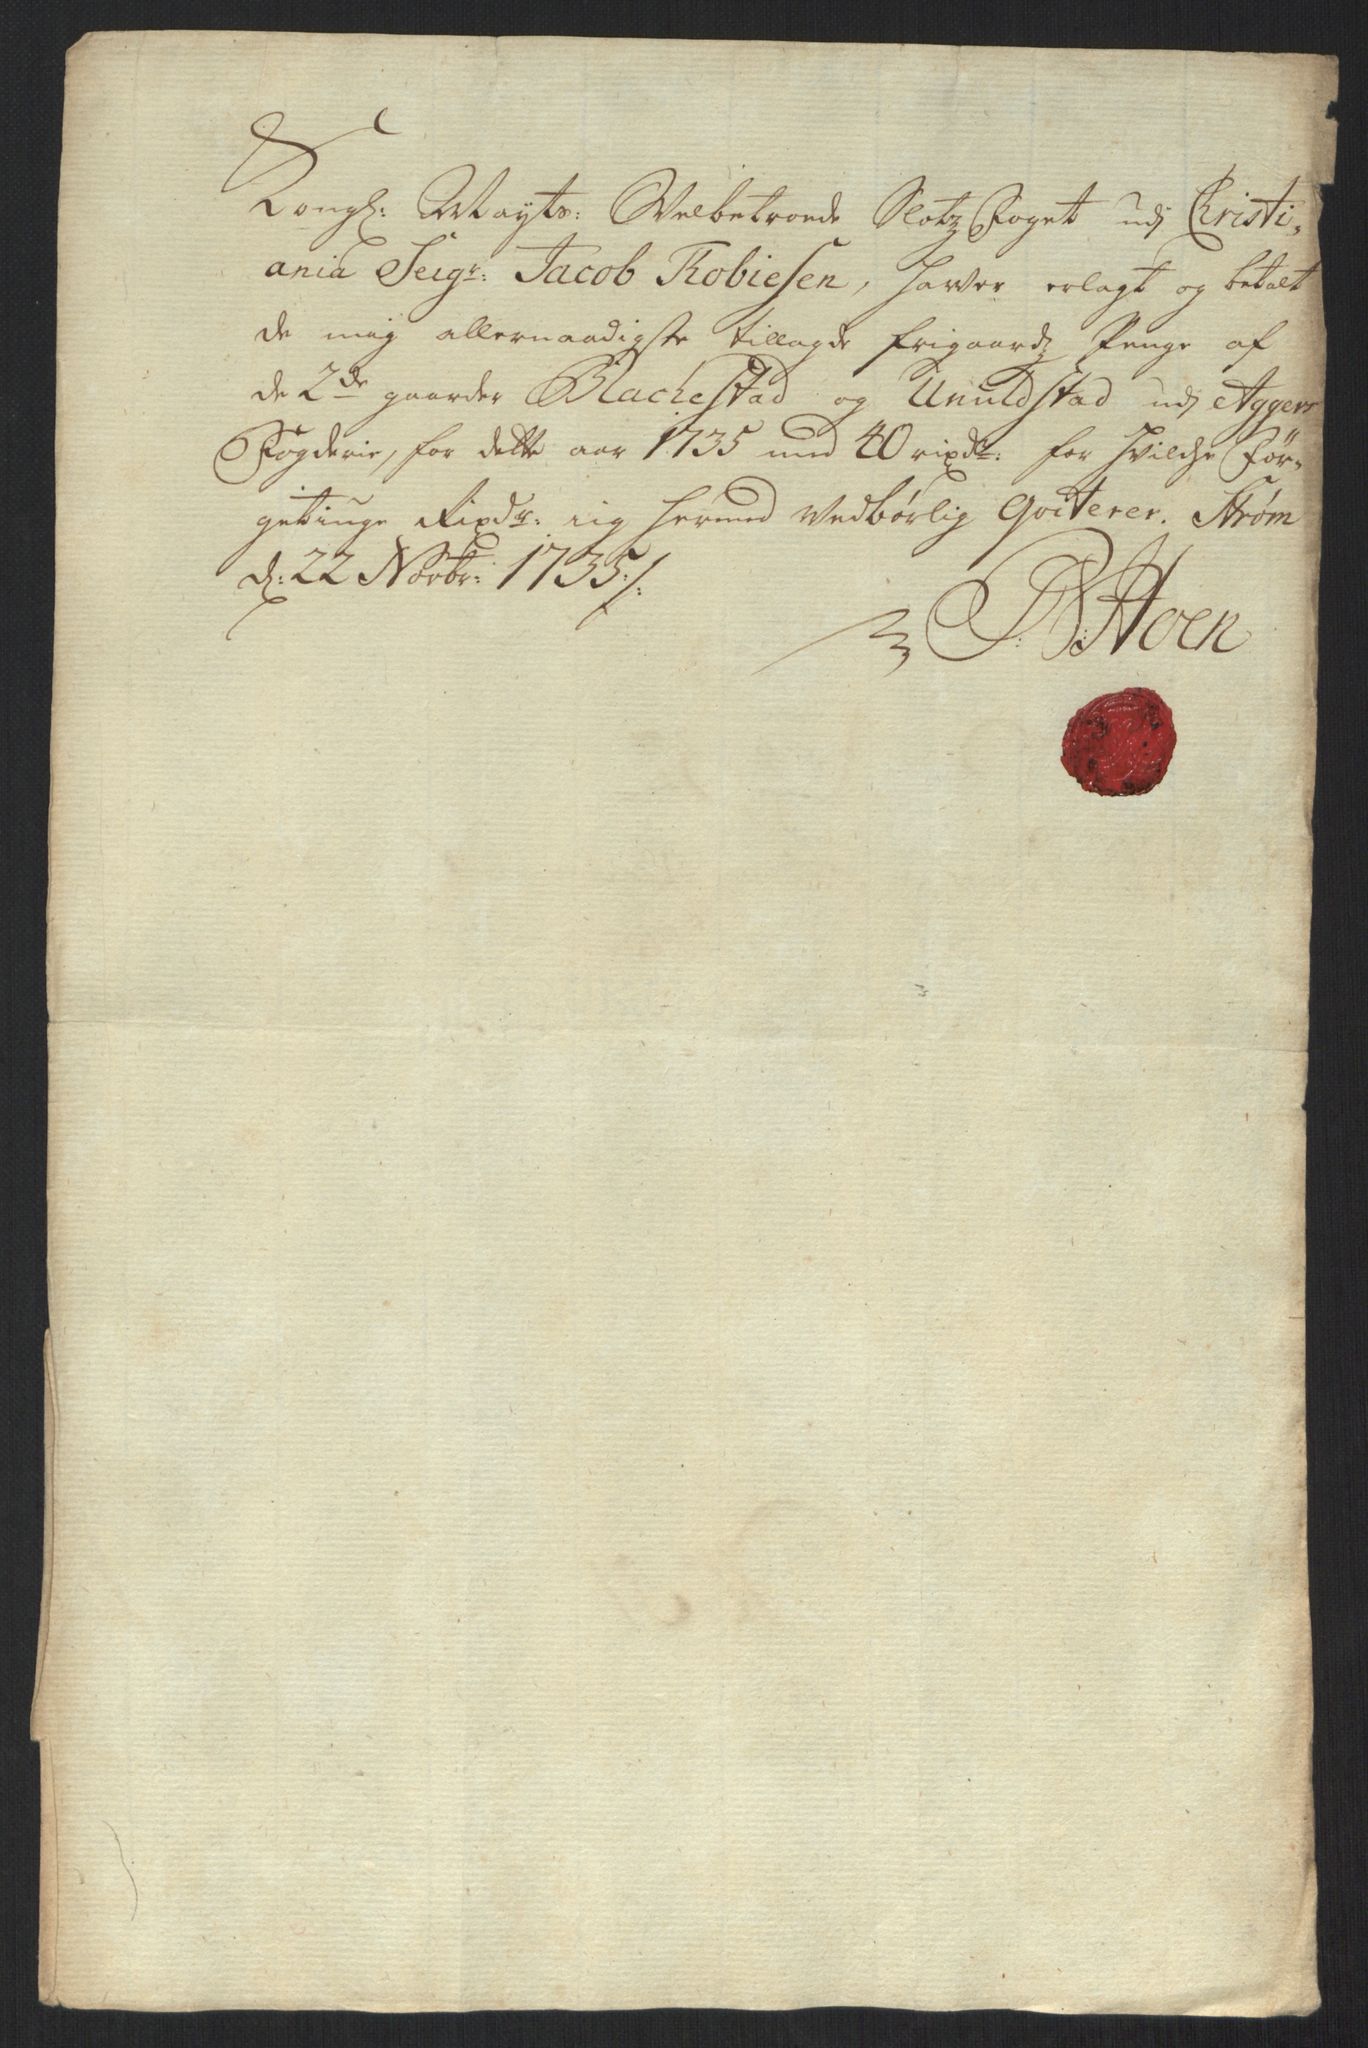 Kongl: Mayts: Velbetroede Slotz Foget udj Christi-
ania Seigr: Jacob Robiesen, haver erlagt og betalt
de mig allernaadigste tillagde frigaardz Penge af
de 2de gaarder Blachestad og Unuldstad udj Aggers
Fogderie, for dette aar 1735 med 40 rixdr: for hvilche För-
getiuge Rixdr: iig hermed Vedbørlig Qviterer. Strøm
d: 22 Novbr: 1735 /:
Hoen